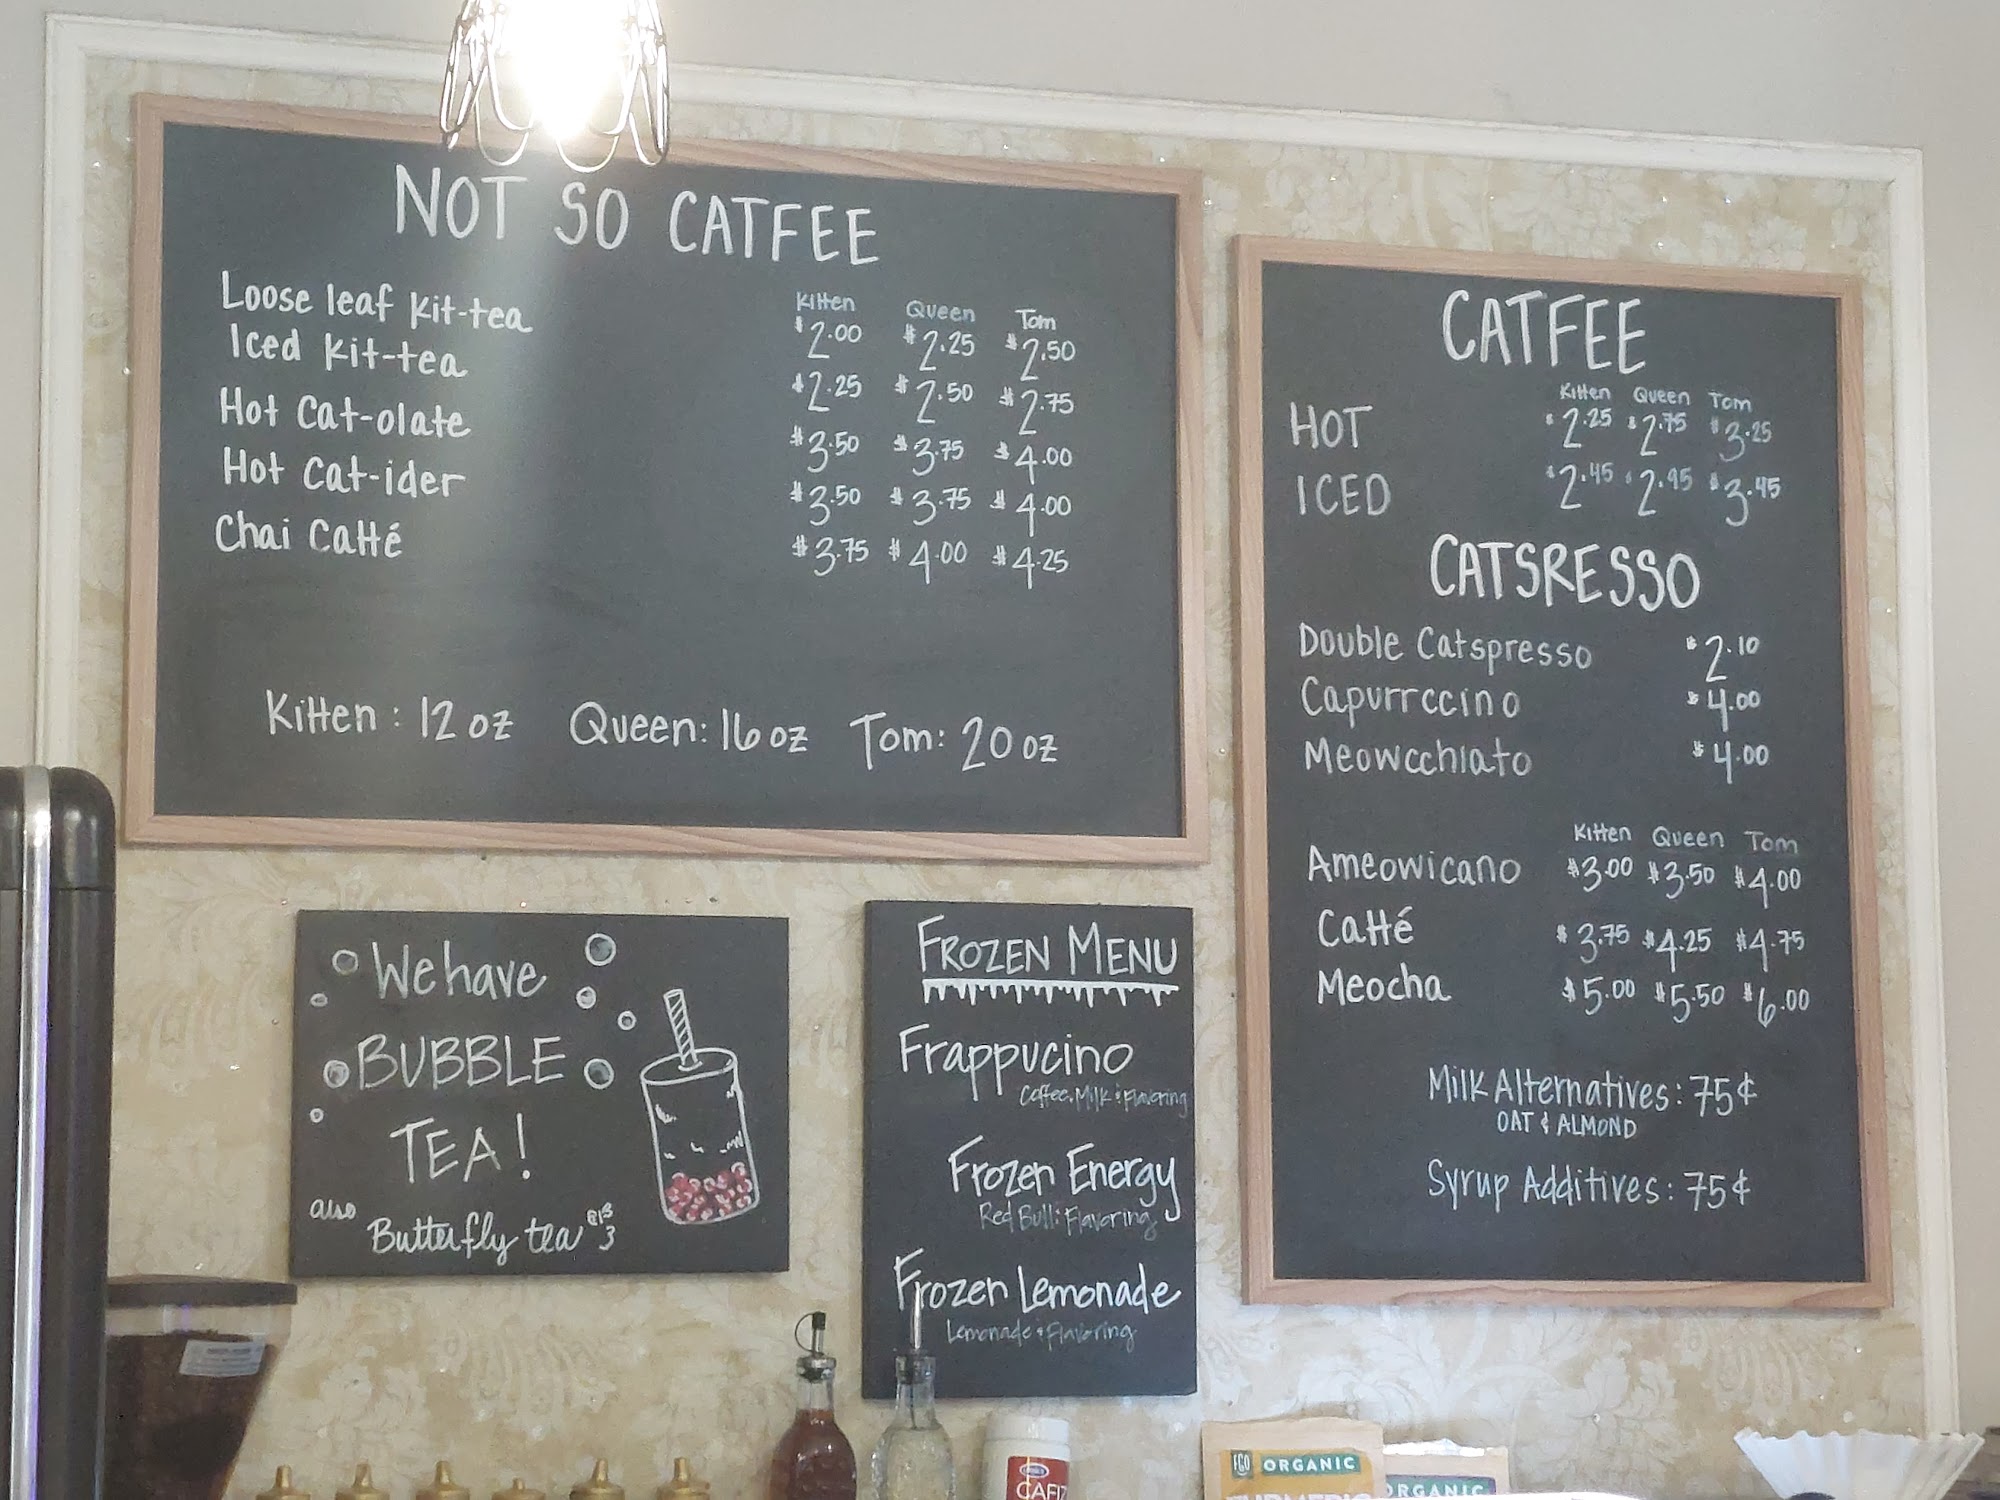 NOT SO CATFEE
Kitten Queen Tom
Loose leaf kit-tea $2.00 $2.25 $2.50
Iced kit-tea $2.25 $2.50 $2.75
Hot Cat-olate $3.50 $3.75 $4.00
Hot Cat-ider $3.50 $3.75 $4.00
Chai Catté $3.75 $4.00 $4.25
Kitten: 12 oz Queen: 16 oz Tom: 20 oz
CATFEE
Kitten Queen Tom
HOT $2.25 $2.75 $3.25
ICED $2.45 $2.95 $3.45
CATSRESSO
Double Catspresso $2.10
Capurrccino $4.00
Meowcchiato $4.00
Kitten Queen Tom
Ameowicano $3.00 $3.50 $4.00
Catté $3.75 $4.25 $4.75
Meocha $5.00 $5.50 $6.00
Milk Alternatives: 75¢
OAT & ALMOND
Syrup Additives: 75¢
We have
BUBBLE
TEA!
also Butterfly tea <3
FROZEN MENU
Frappucino
Coffee, Milk & Flavoring
Frozen Energy
Red Bull & Flavoring
Frozen Lemonade
Lemonade & Flavoring
FGO ORGANIC
ORGANIC
CAFIZ